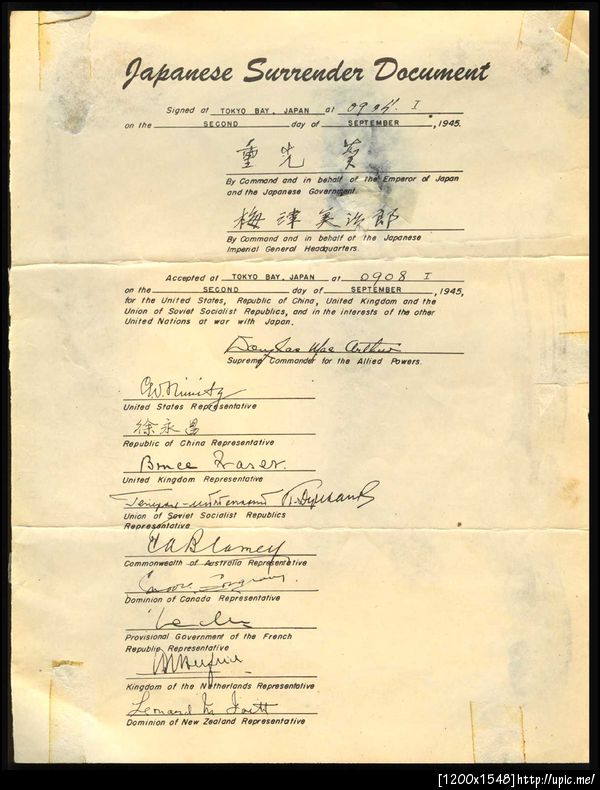 Japanese Surrender Document
Signed at TOKYO BAY, JAPAN at 0904 I
on the SECOND day of SEPTEMBER, 1945.
重光葵
By Command and in behalf of the Emperor of Japan
and the Japanese Government.
梅津美治郎
By Command and in behalf of the Japanese
Imperial General Headquarters.
Accepted at TOKYO BAY, JAPAN at 0908 I
on the SECOND day of SEPTEMBER, 1945,
for the United States, Republic of China, United Kingdom and the
Union of Soviet Socialist Republics, and in the interests of the other
United Nations at war with Japan.
Douglas MacArthur
Supreme Commander for the Allied Powers.
C.W. Nimitz
United States Representative
徐永昌
Republic of China Representative
Bruce Fraser.
United Kingdom Representative
Union of Soviet Socialist Republics
Representative
T.A. Blamey
Commonwealth of Australia Representative
Dominion of Canada Representative
Provisional Government of the French
Republic Representative
Kingdom of the Netherlands Representative
Leonard M Isitt
Dominion of New Zealand Representative
[1200x1548]http://upic.me/